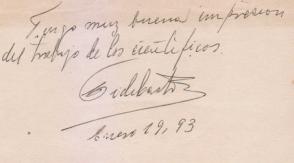 Tengo muy buena impresion
del trabajo de los cientificos.
Enero 19, 93